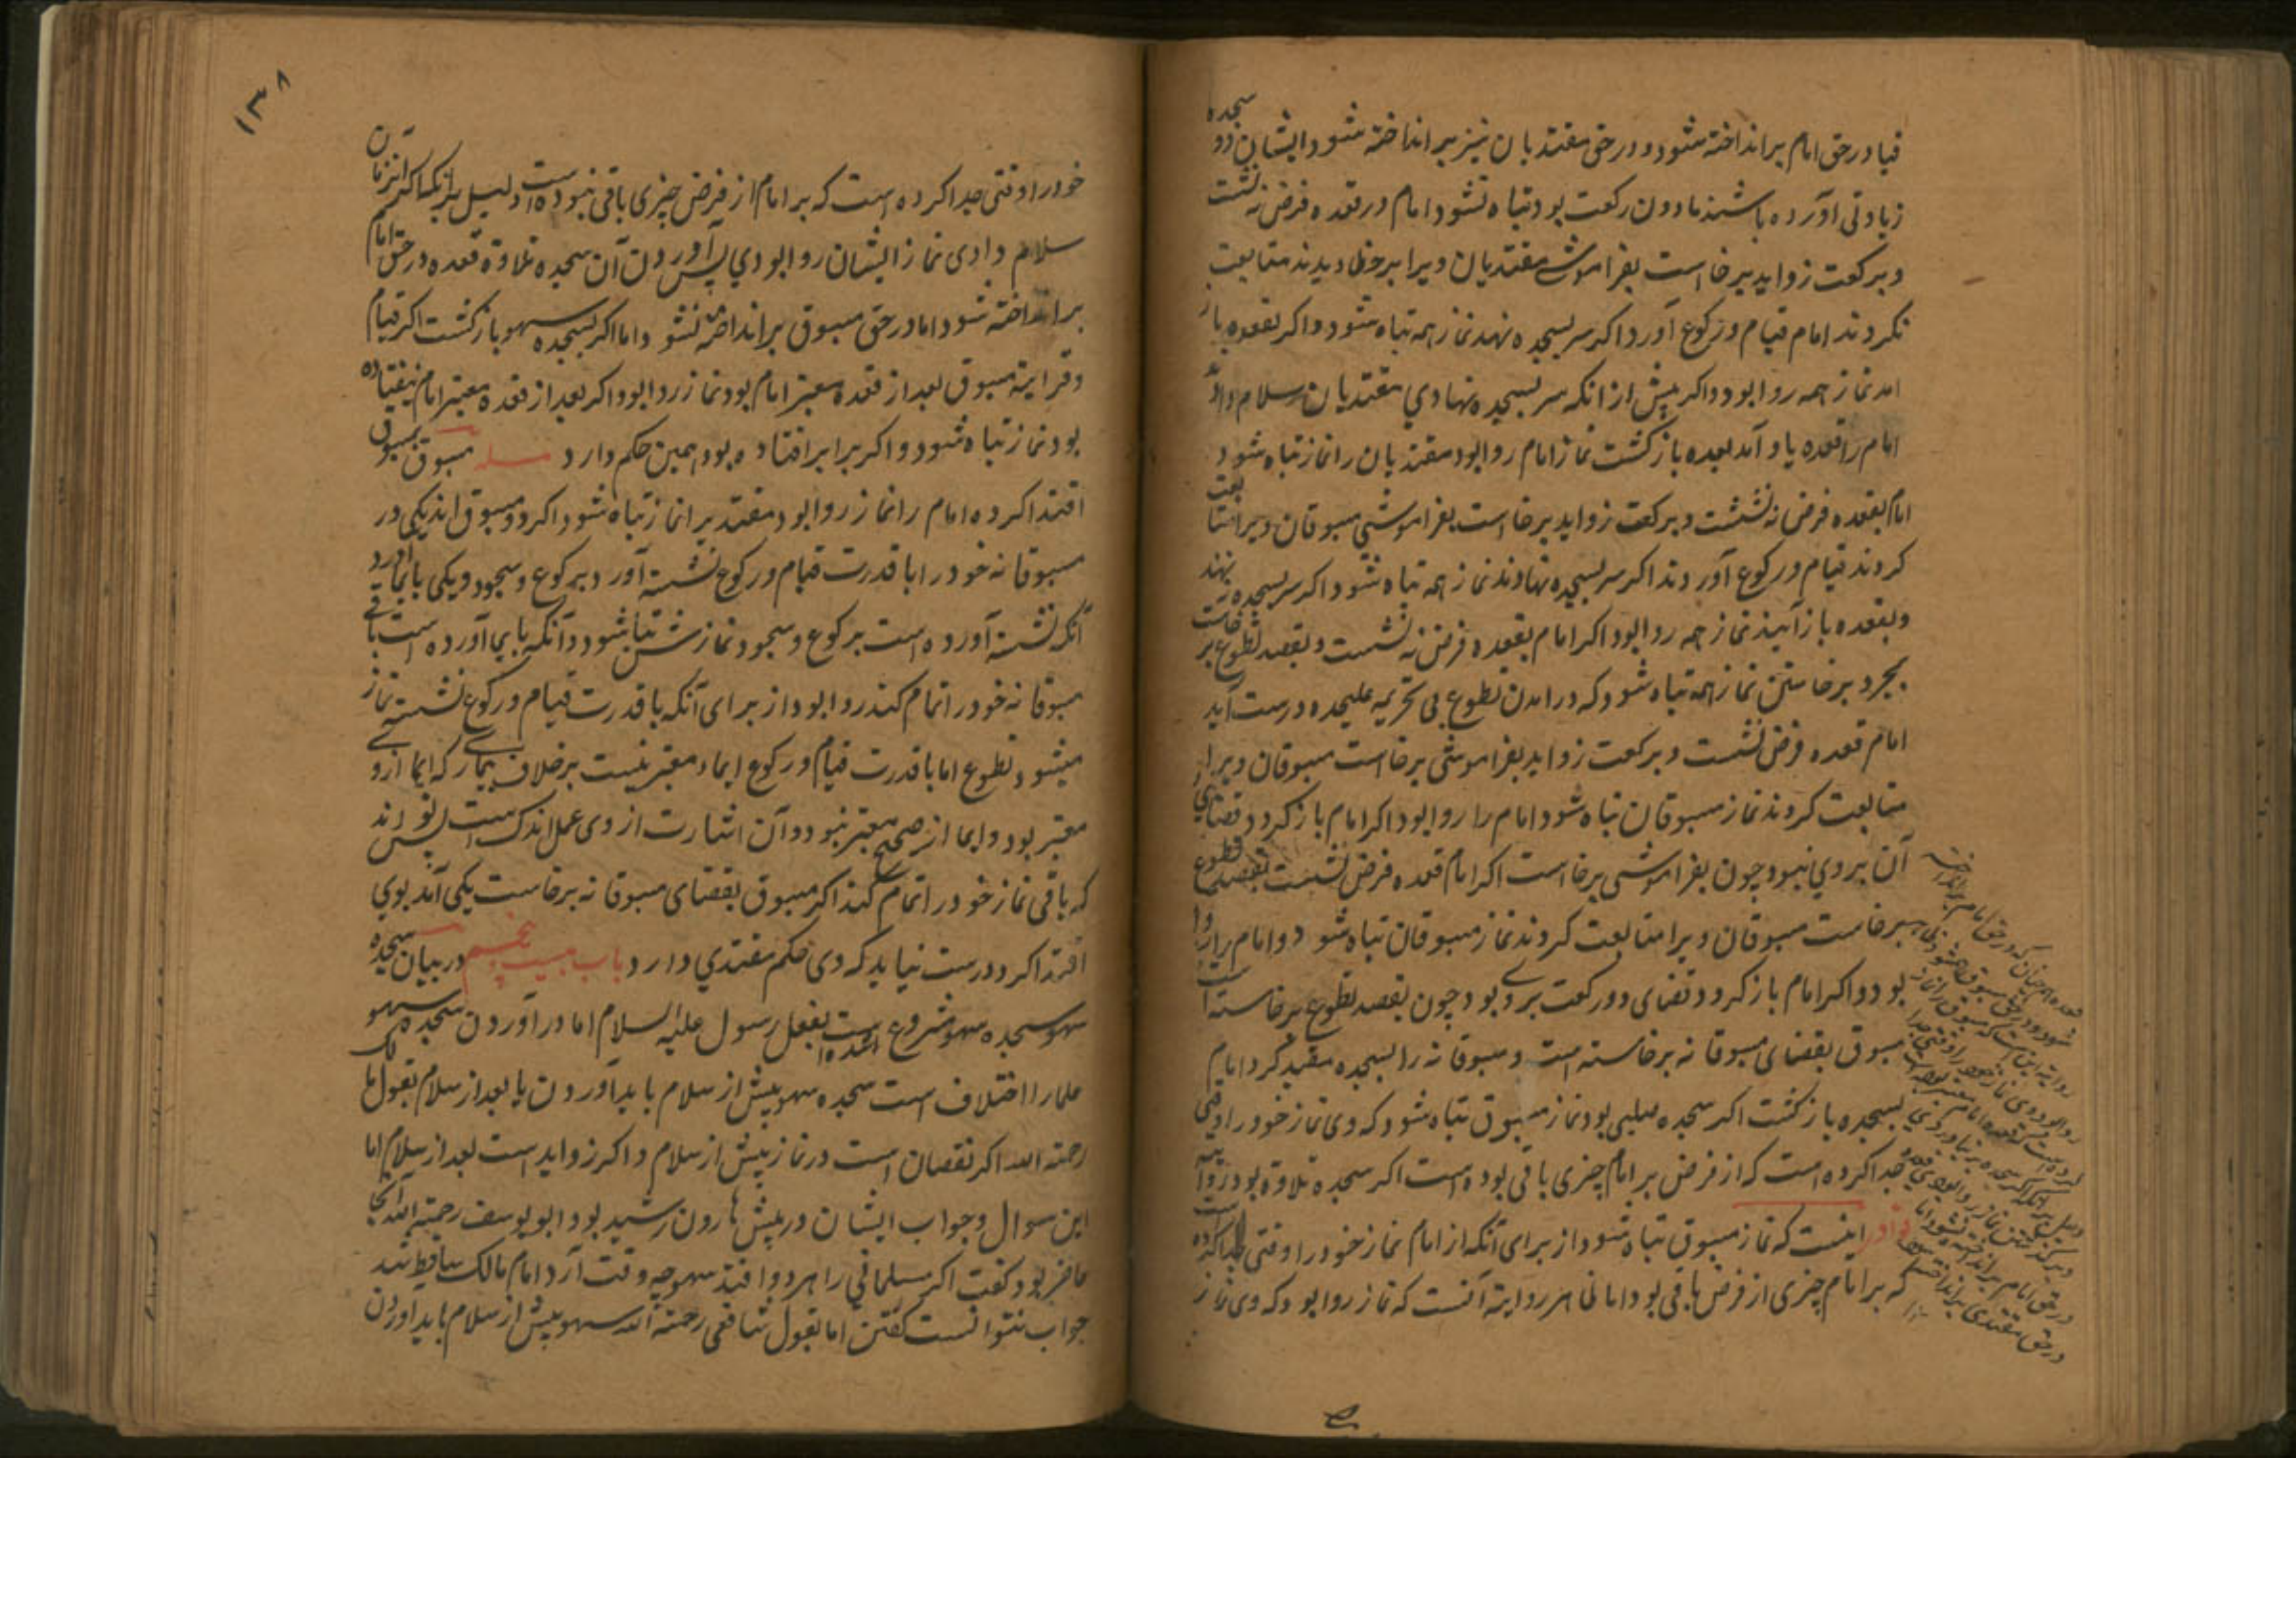 قیا در حق امام برانداخته شود و در حق مقتدیان نیز برانداخته شود ایشان دو سجده
زیادتی آورده باشند مادون رکعت بود تباه نشود امام در قعده فرض نه نشست
و برکعت زواید برخاست بفراموشی مقتدیان ویرا بر خطا دیدند متابعت
نکردند امام قیام و رکوع آورد اکر سر بسجده نهد نماز همه تباه شود و اکر بقعده باز
امد نماز همه روا بود و اکر پیش از انکه سر بسجده نهادی مقتدیان سلام داد
امام را قعده یاد آمد بعده بازکشت نماز امام روا بود مقتدیان را نماز تباه شود
امام بقعده فرض نه نشست و برکعت زواید برخاست بفراموشی مسبوقان ویرا متابعت
کردند قیام و رکوع آوردند اکر سر بسجده نهادند نماز همه تباه شود اکر سر بسجده نه نهند
و بقعده باز آیند نماز همه روا بود اکر امام بقعده فرض نه نشست و بقصد تطوع برخاست
بمجرد برخاستن نماز همه تباه شود که درامدن تطوع بی تحریمه علیحده درست آید
امام قعده فرض نشست و برکعت زواید بفراموشی برخاست مسبوقان ویرا
متابعت کردند نماز مسبوقان تباه شود امام را روا بود اکر امام باز کردد قضای
آن بروی نبود چون بفراموشی برخاست اکر امام قعده فرض نشست بقصد تطوع
برخاست مسبوقان ویرا متابعت کردند نماز مسبوقان تباه شود و امام را روا
بود و اکر امام باز کردد قضای دو رکعت بر وی بود چون بقصد تطوع برخاسته است
مسبوق بقضای مسبوقانه برخاسته است و مسبوقانه را بسجده مقید کرد امام
بسجده بازکشت اکر سجده صلبی بود نماز مسبوق تباه شود که وی نماز خود را وقتی
جدا کرده است که از فرض بر امام چیزی باقی بوده است اکر سجده تلاوة بود روایت
نوادر اینست که نماز مسبوق تباه شود از برای آنکه از امام نماز خود را وقتی جدا کرده است
که بر امام چیزی از فرض باقی بود اما ظاهر روایة آنست که نماز روا بود که وی نماز
۱۳۸
خود را وقتی جدا کرده است که بر امام از فرض چیزی باقی نبوده است دلیل بر آنکه اکر آن زمان
سلام دادی نماز ایشان روا بودی پس آوردن آن سجده تلاوة قعده در حق امام
برانداخته شود اما در حق مسبوق برانداخته نشود و اما اکر بسجده سهو بازکشت اکر قیام
و قرایة مسبوق بعد از قعده معتبر امام بود نماز روا بود و اکر بعد از قعده معتبر امام نیفتاده
بود نماز تباه شود و اکر برابر افتاده بود همین حکم دارد مسله مسبوق بمسبوق
اقتدا کرده امام را نماز روا بود مقتدیرا نماز تباه شود اکر دو مسبوق اند یکی در
مسبوقانه خود را با قدرت قیام و رکوع نشسته آورد برکوع و سجود و یکی بایما آورد
آنکه نشسته آورده است برکوع و سجود نمازش تباه شود و آنکه بایما آورده است باقی
مسبوقانه خود را تمام کند روا بود از برای آنکه با قدرت قیام و رکوع نشستن نماز
میشود تطوع اما با قدرت قیام و رکوع ایما معتبر نیست برخلاف بیمار که ایما از وی
معتبر بود و ایما از صحیح معتبر نبود و آن اشارت از وی عمل اندک است پس تواند
که باقی نماز خود را تمام کند اکر مسبوق بقضای مسبوقانه برخاست یکی آمد بوی
اقتدا کرد درست نیاید که وی حکم مقتدی دارد باب بیست پنجم در بیان سجده
سهو سجده سهو مشروع شده است بفعل رسول علیه السلام اما در آوردن سجده سهو
علما را اختلاف است سجده سهو پیش از سلام باید آوردن یا بعد از سلام بقول مالک
رحمة الله اکر نقصان است در نماز پیش از سلام و اکر زواید است بعد از سلام اما
این سوال و جواب ایشان در پیش هارون رشید بود و ابو یوسف رحمة الله آنجا
حاضر بود کفت اکر مسلمانی را هر دو افتد سهو چه وقت آرد امام مالک ساقط شد
جواب نتوانست کفتن اما بقول شافعی رحمة الله سهو پیش از سلام باید آوردن